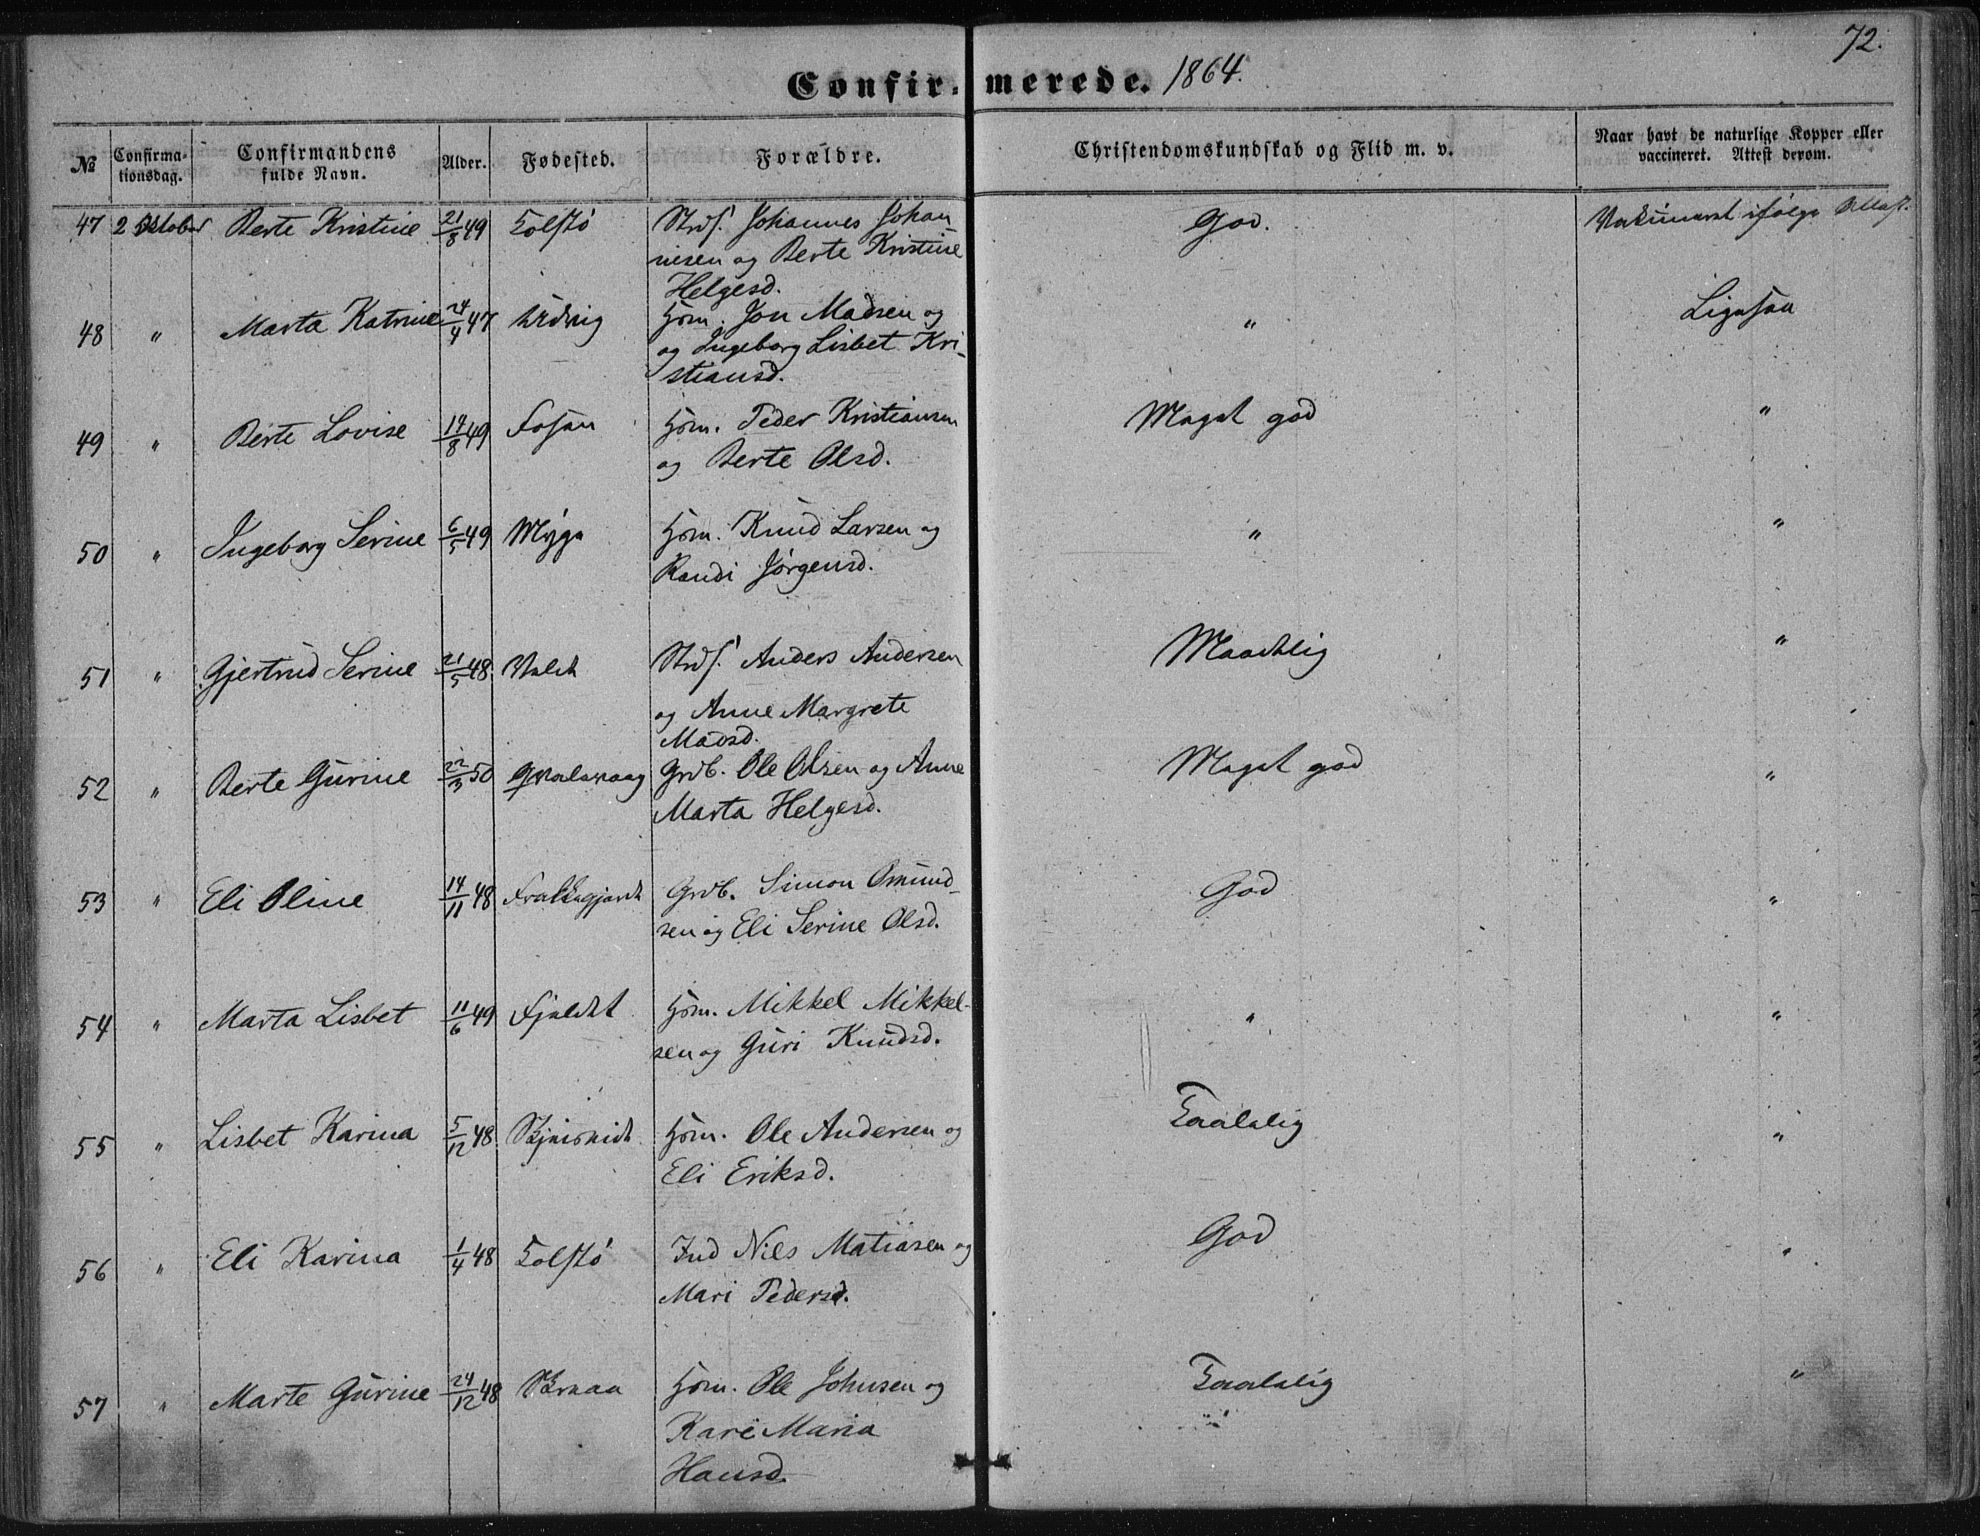 72.
Confirmerede. 1864.
№ Confirmationsdag. Confirmandens fulde Navn. Alder. Fødested. Forældre. Christendomskundskab og Flid m. v. Naar havt de naturlige Kopper eller vaccineret. Attest derom.
47 2 Oktober Berte Kristine 21/8 49 Tolstø Strds. Johannes Johan- God. Vakcineret ifølge Attest.
nesen og Berte Kristine
Helgesd.
48 " Marta Katrine 24/4 47 Udvig Hsm. Jon Madsen og " Ligesaa
og Ingeborg Lisbet Kri-
stiansd.
49 " Berte Lovise 14/8 49 Fosan Hsm. Peder Kristiansen Meget god "
og Berte Olsd.
50 " Ingeborg Serine 6/5 49 Myge Hsm. Knud Larsen og " "
Randi Jørgensd.
51 " Gjertrud Serine 21/5 48. Strds. Anders Andersen Maadelig "
og Anne Margrete
Madsd.
52 " Berte Gurine 22/3 50 Qvalavaag Grdb. Ole Olsen og Anne Meget god "
Marta Helgesd.
53 " Eli Oline 14/11 48 Frakkagjerde Grdb. Simon Omund- God "
sen og Eli Serine Olsd.
54 " Marta Lisbet 11/6 49 Fjeldet Hsm. Mikkel Mikkel- " "
sen og Guri Knudsd.
55 " Lisbet Karina 5/12 48. Hsm. Ole Andersen og Taalelig "
Eli Eriksd.
56 " Eli Karina 1/4 48 Tolstø Ind Nils Matiasen og God "
Mari Pedersd.
57 " Marte Gurine 24/12 48 Hsm. Ole Johnsen og Taalelig "
Kari Maria
Hansd.